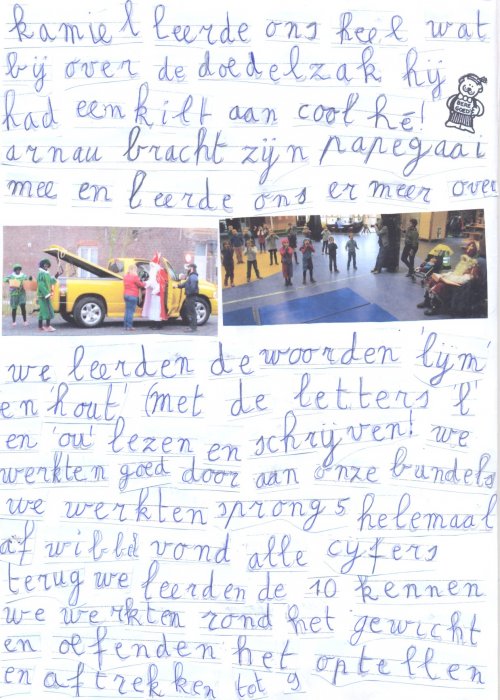 kamiel leerde ons heel wat
bij over de doedelzak hij
had een kilt aan cool hé!
BERE
GOED!
arnau bracht zijn papegaai
mee en leerde ons er meer over
we leerden de woorden 'lijm'
en 'hout' (met de letters 'l'
en 'ou' lezen en schrijven! we
werkten goed door aan onze bundels
we werkten sprong 5 helemaal
af wibbel vond alle cijfers
terug we leerden de 10 kennen
we werkten rond het gewicht
en oefenden het optellen
en aftrekken tot 9